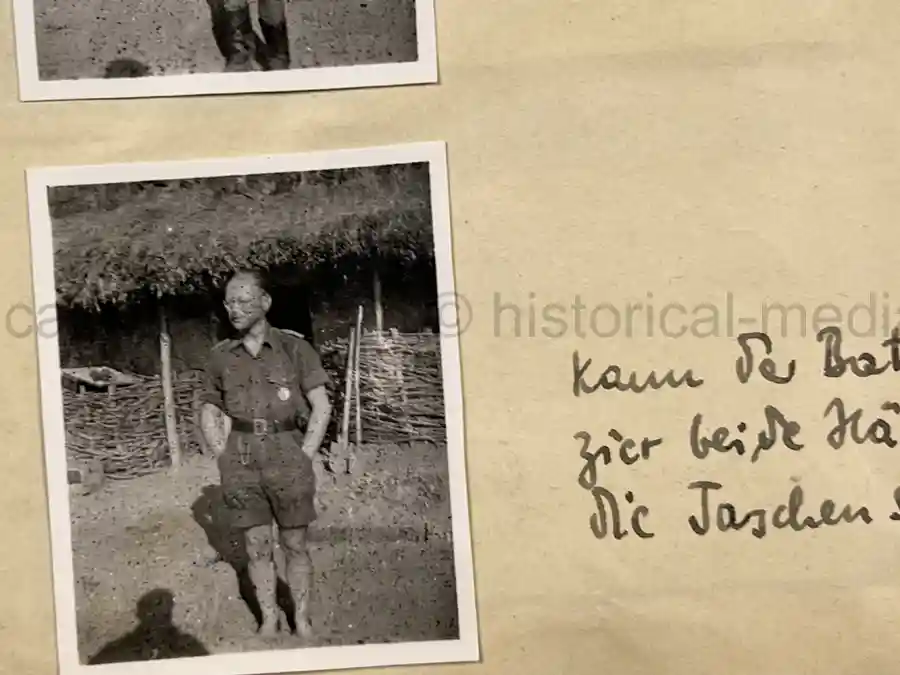 © historical-media
kann der Bat
zier beide Hä
die Taschen s